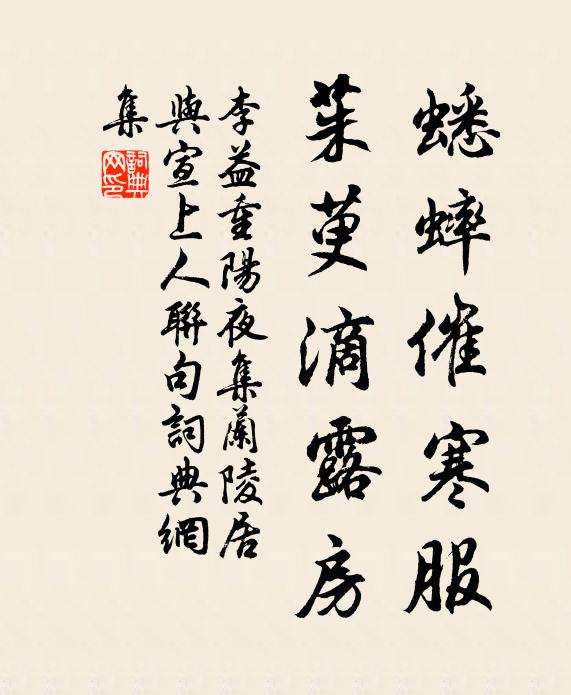 蟋蟀催寒服
茱萸滴露房
李益重陽夜集蘭陵居
與宣上人聯句詞典網
集
詞典
网印